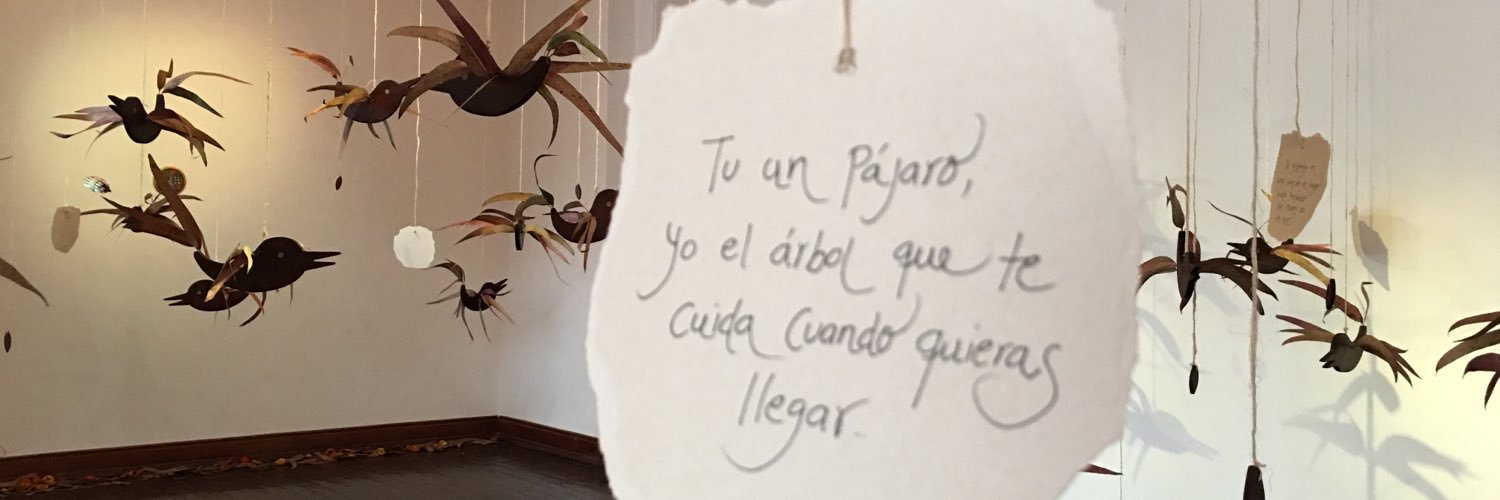 Tu un Pájaro,
yo el árbol que te
cuida cuando quieras
llegar.